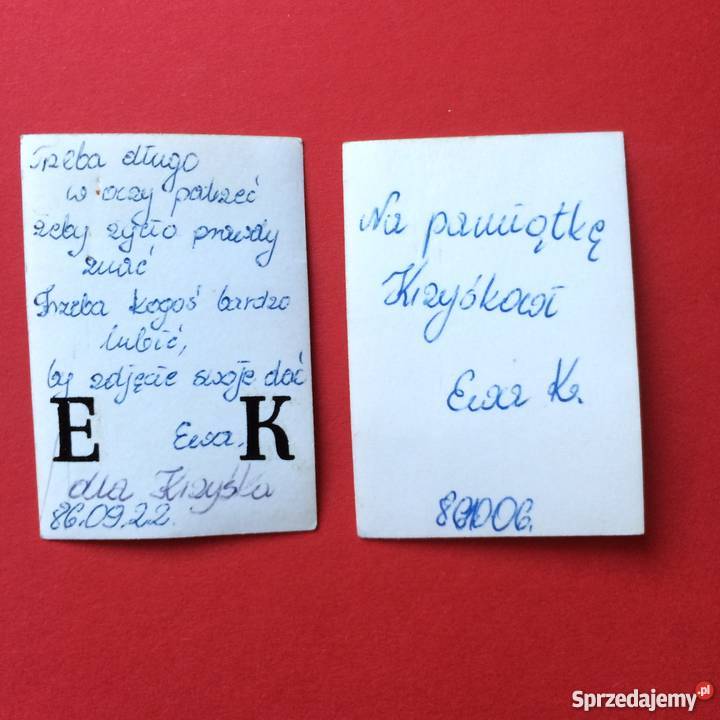 Trzeba długo
w oczy patrzeć
żeby życio prawdy
znać
Trzeba kogoś bardzo
lubić,
by zdjęcie swoje dać
E Ewa. K
dla Krzyśka
86.09.22.
Na pamiątkę
Krzyśkowi
Ewa K.
Sprzedajemy.pl